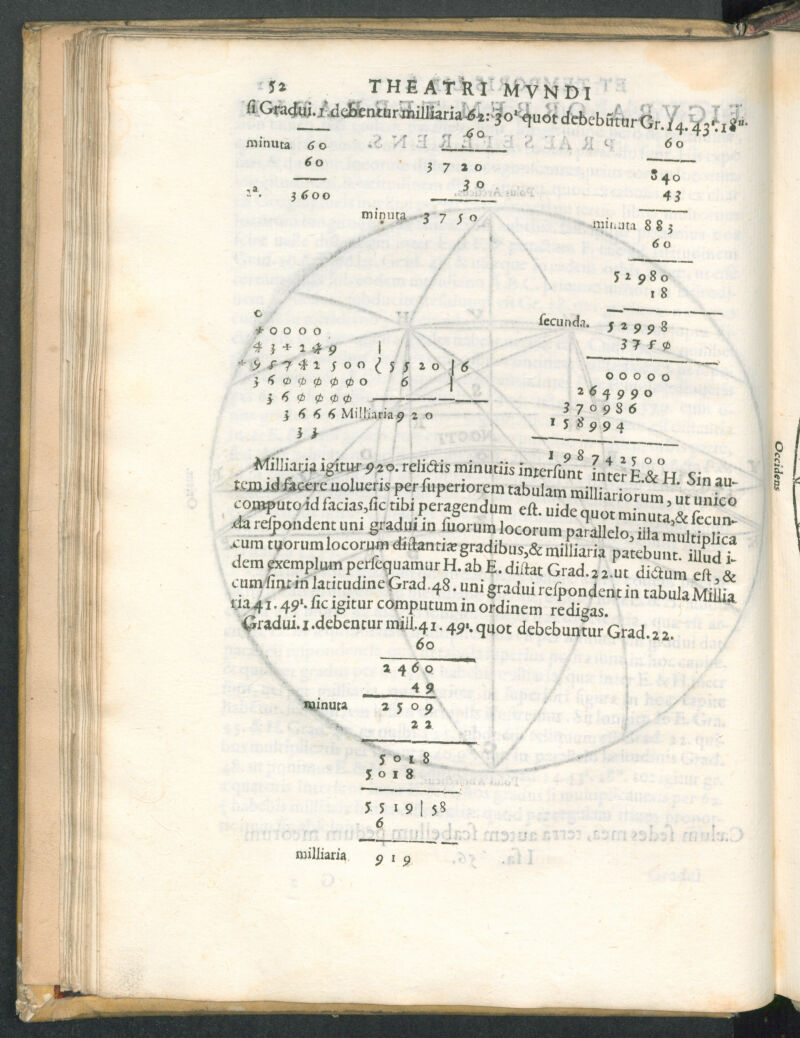 52 THEATRI MVNDI
ſi Gradui. 1 debentur milliaria 62: 30ˡ quot debebūtur Gr. 14. 43ˡ. 18ⁿ.
60 60
minuta 60
60 3720 840
30 43
2ª. 3600
minuta 3750 minuta 883
60
52980
18
0 ſecunda. 52998
0000 3750
00000
264990
6 370986
3666 Milliaria 920 158994
33 198742500
Milliaria igitur 920. relictis minutiis interſunt inter E. & H. Sin au-
tem id facere uolueris per ſuperiorem tabulam milliariorum, ut unico
computo id facias, ſic tibi peragendum eſt. uide quot minuta, & ſecun-
da reſpondent uni gradui in ſuorum locorum parallelo, illa multiplica
cum tuorum locorum diſtantiæ gradibus, & milliaria patebunt. illud i-
dem exemplum perſequamur H. ab E. diſtat Grad. 22. ut dictum eſt, &
cum ſint in latitudine Grad. 48. uni gradui reſpondent in tabula Millia
ria 41. 49ˡ. ſic igitur computum in ordinem redigas.
Gradui. 1. debentur mill. 41. 49ˡ. quot debebuntur Grad. 22.
60
2460
49
minuta 2509
22
5018
5018
5519|58
6
milliaria 919
Occidens